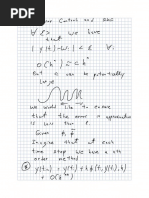 Error Control and
∀ t > we have
that
| y(ti) - wi | < ε ∀i
O(h^n) ≤ c h^n
But c can be potentially
large
We would like to ensure
that the error of approximation
is less than
Given
Imagine that at each
time step we have a n-th
order method
y(ti+1) = y(ti) + h ϕ(ti, y(ti), h)
+ O(h^n+1)